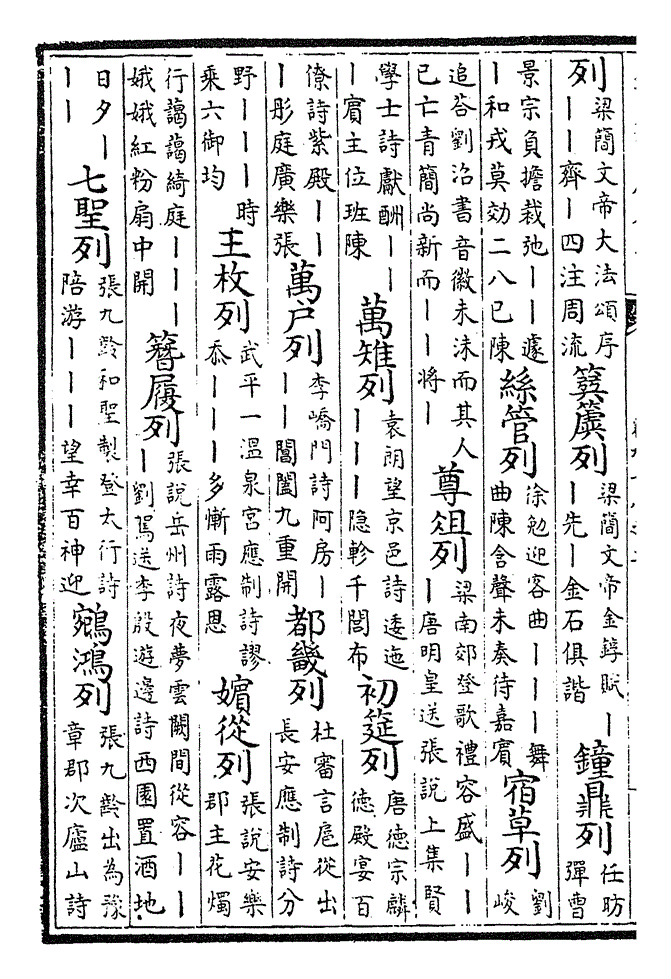 列梁簡文帝大法頌序丨丨齊丨四注周流簨簴列梁簡文帝金錞賦丨丨先丨金石俱諧鐘鼎列任昉彈曹
景宗負擔裁弛丨丨遽丨和戎莫効二八已陳絲管列徐勉迎客曲丨丨丨舞曲陳含聲未奏待嘉賓宿草列劉峻
追答劉沼書音徽未沬而其人已亡青簡尚新而丨丨將丨尊俎列梁南郊登歌禮容盛丨丨丨唐明皇送張說上集賢
學士詩獻酬丨丨丨賓主位班陳萬雉列袁朗望京邑詩逶迤丨丨丨隐軫千閭布初筵列唐德宗麟徳殿宴百
僚詩紫殿丨丨丨彤庭廣樂張萬户列李嶠門詩阿房丨丨丨閶闔九重開都畿列杜審言扈從出長安應制詩分
野丨丨丨時乘六御均主枚列武平一溫泉宮應制詩謬忝丨丨丨多慚雨露恩嬪從列張說安樂郡主花燭
行藹藹綺庭丨丨丨娥娥紅粉扇中開簪履列張說岳州詩夜夢雲闕間從容丨丨丨劉駕送李殷遊邊詩西園置酒地
日夕丨丨丨七聖列張九齡和聖製登太行詩陪游丨丨丨望幸百神迎鵷鴻列張九齡出為豫章郡次廬山詩